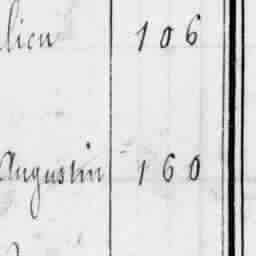 lien 106
Augustin 160